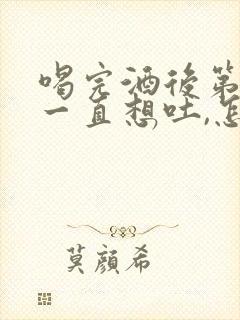 喝完酒後第
一直想吐,怎
莫顏希